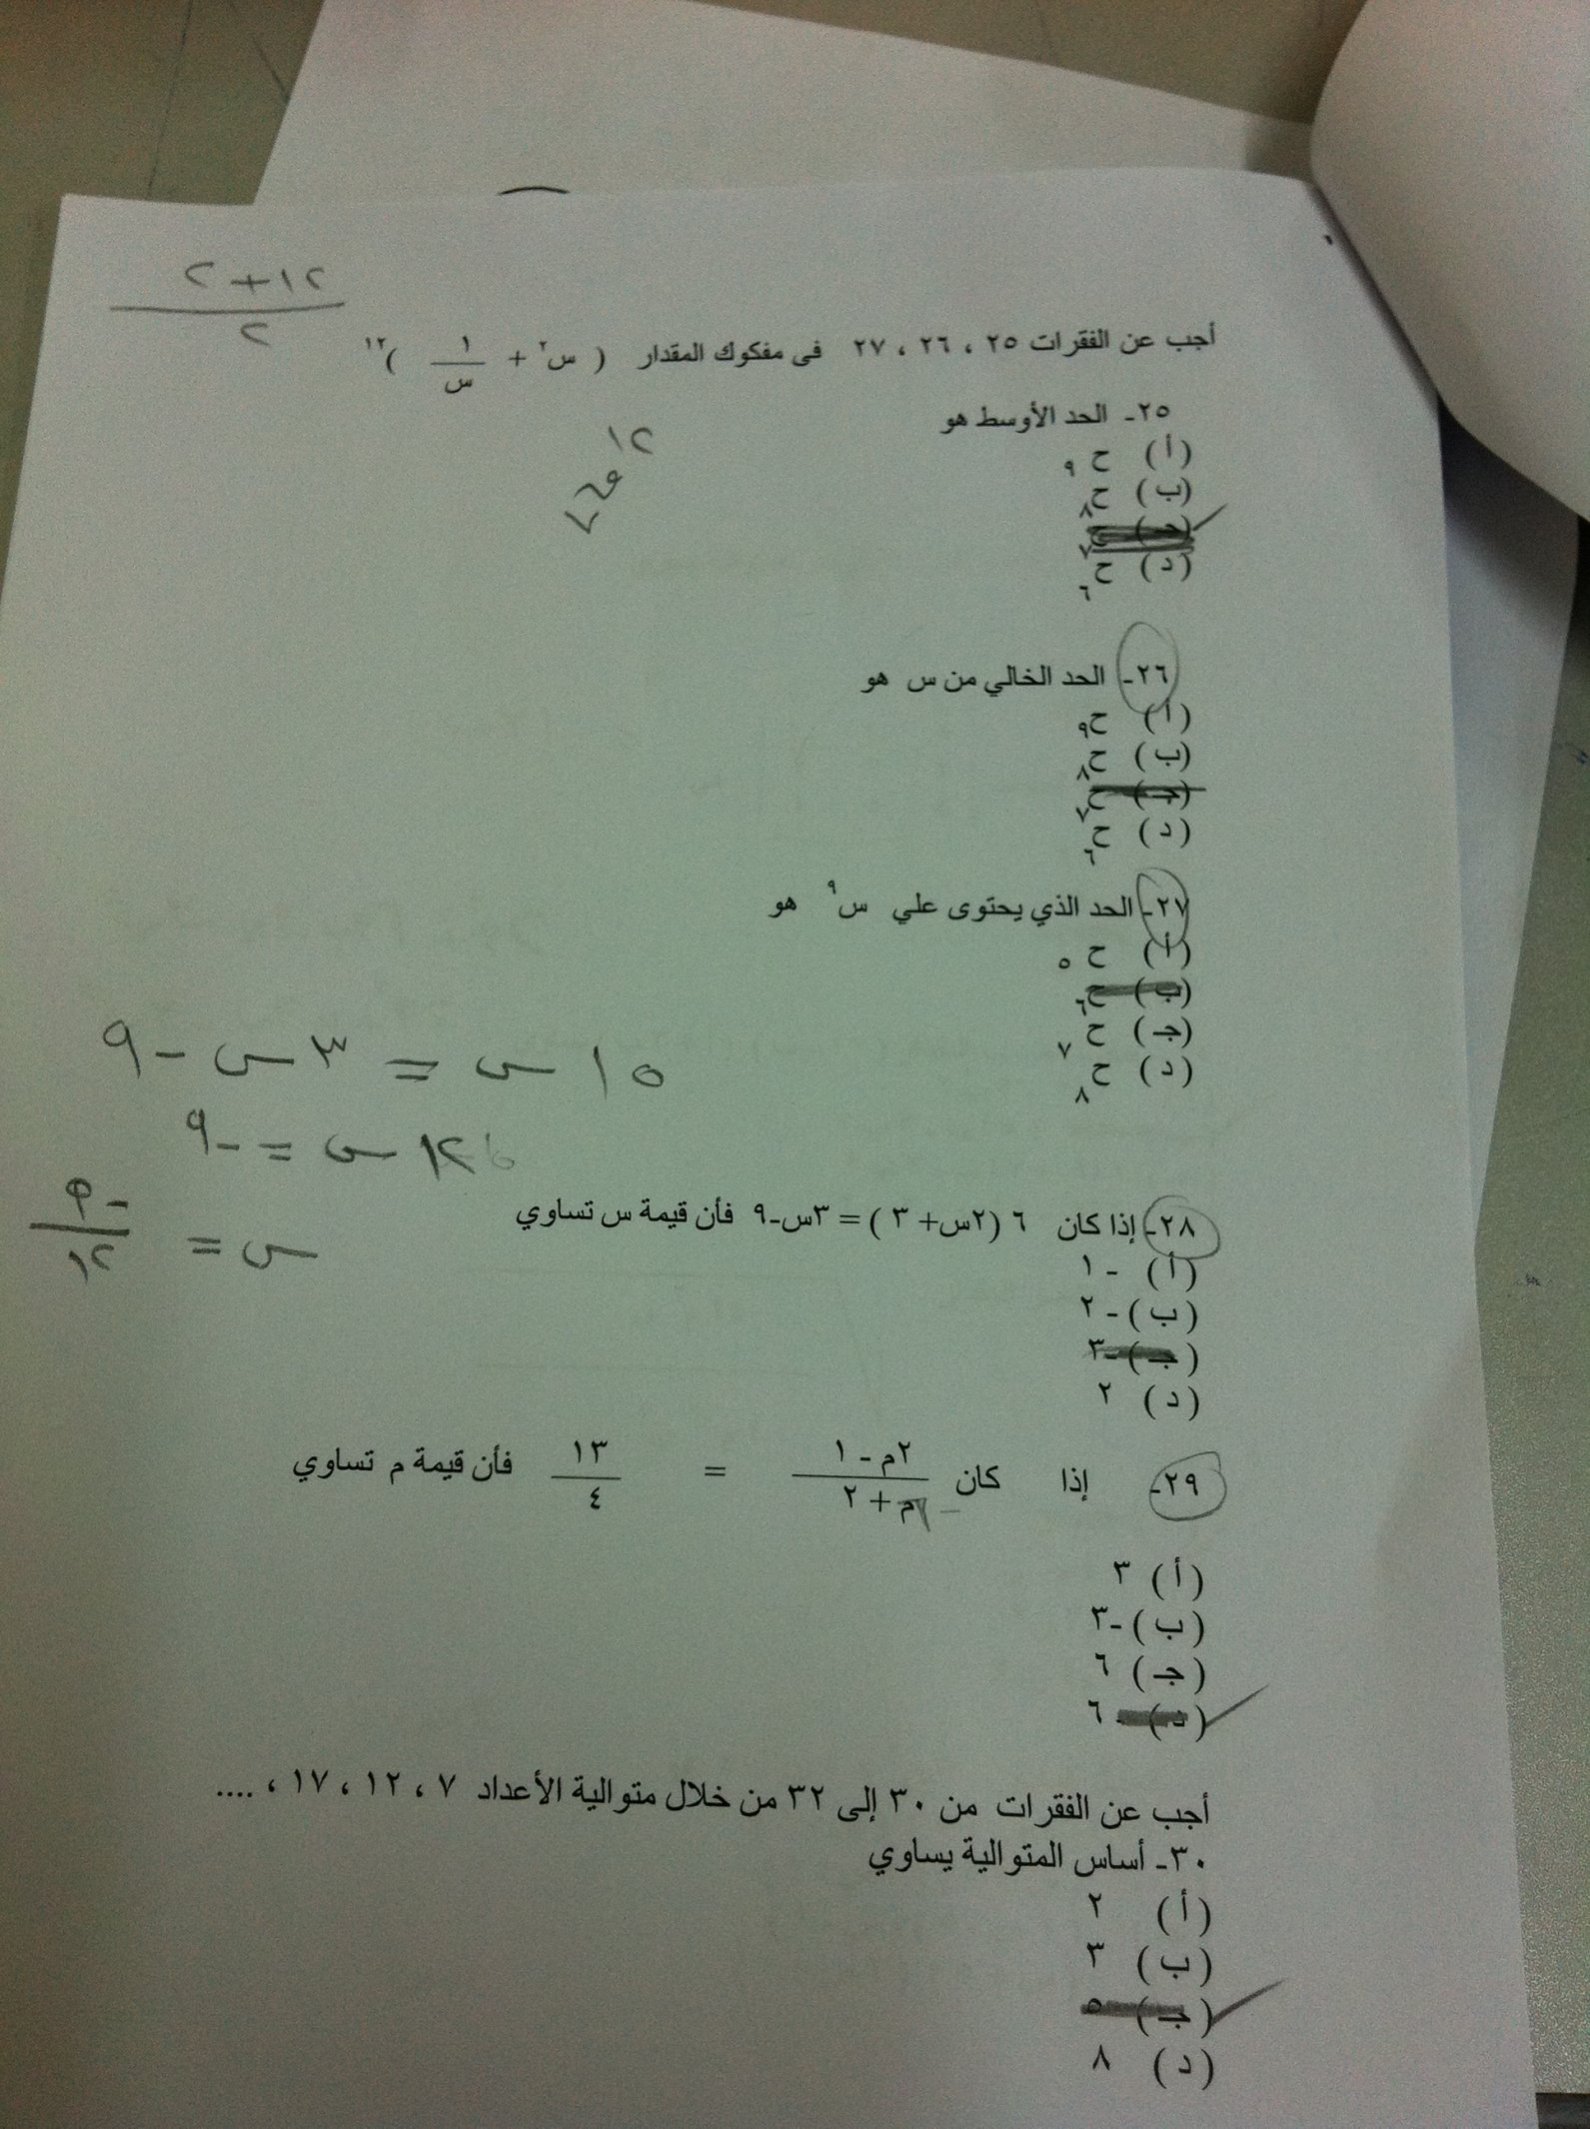 ٢+١٢
٢
أجب عن الفقرات ٢٥ ، ٢٦ ، ٢٧ فى مفكوك المقدار ( س٢ + ١/س )١٢
٢٥- الحد الأوسط هو
(أ) ح٩
(ب) ح٨
(جـ) ح٧
(د) ح٦
٢٦- الحد الخالي من س هو
(أ) ح٩
(ب) ح٨
(جـ) ح٧
(د) ح٦
٢٧- الحد الذي يحتوى علي س٩ هو
(أ) ح٥
(ب) ح٦
(جـ) ح٧
(د) ح٨
١٥ س = ٣ س - ٩
١٢ س = -٩
س = -٩/١٢
٢٨- إذا كان ٦ (٢س+ ٣ ) = ٣س-٩ فأن قيمة س تساوي
(أ) - ١
(ب) - ٢
(جـ) -٣
(د) ٢
٢٩- إذا كان ٢م - ١ / م + ٢ = ١٣ / ٤ فأن قيمة م تساوي
(أ) ٣
(ب) -٣
(جـ) ٦
(د) - ٦
أجب عن الفقرات من ٣٠ إلى ٣٢ من خلال متوالية الأعداد ٧ ، ١٢ ، ١٧ ، ....
٣٠- أساس المتوالية يساوي
(أ) ٢
(ب) ٣
(جـ) ٥
(د) ٨